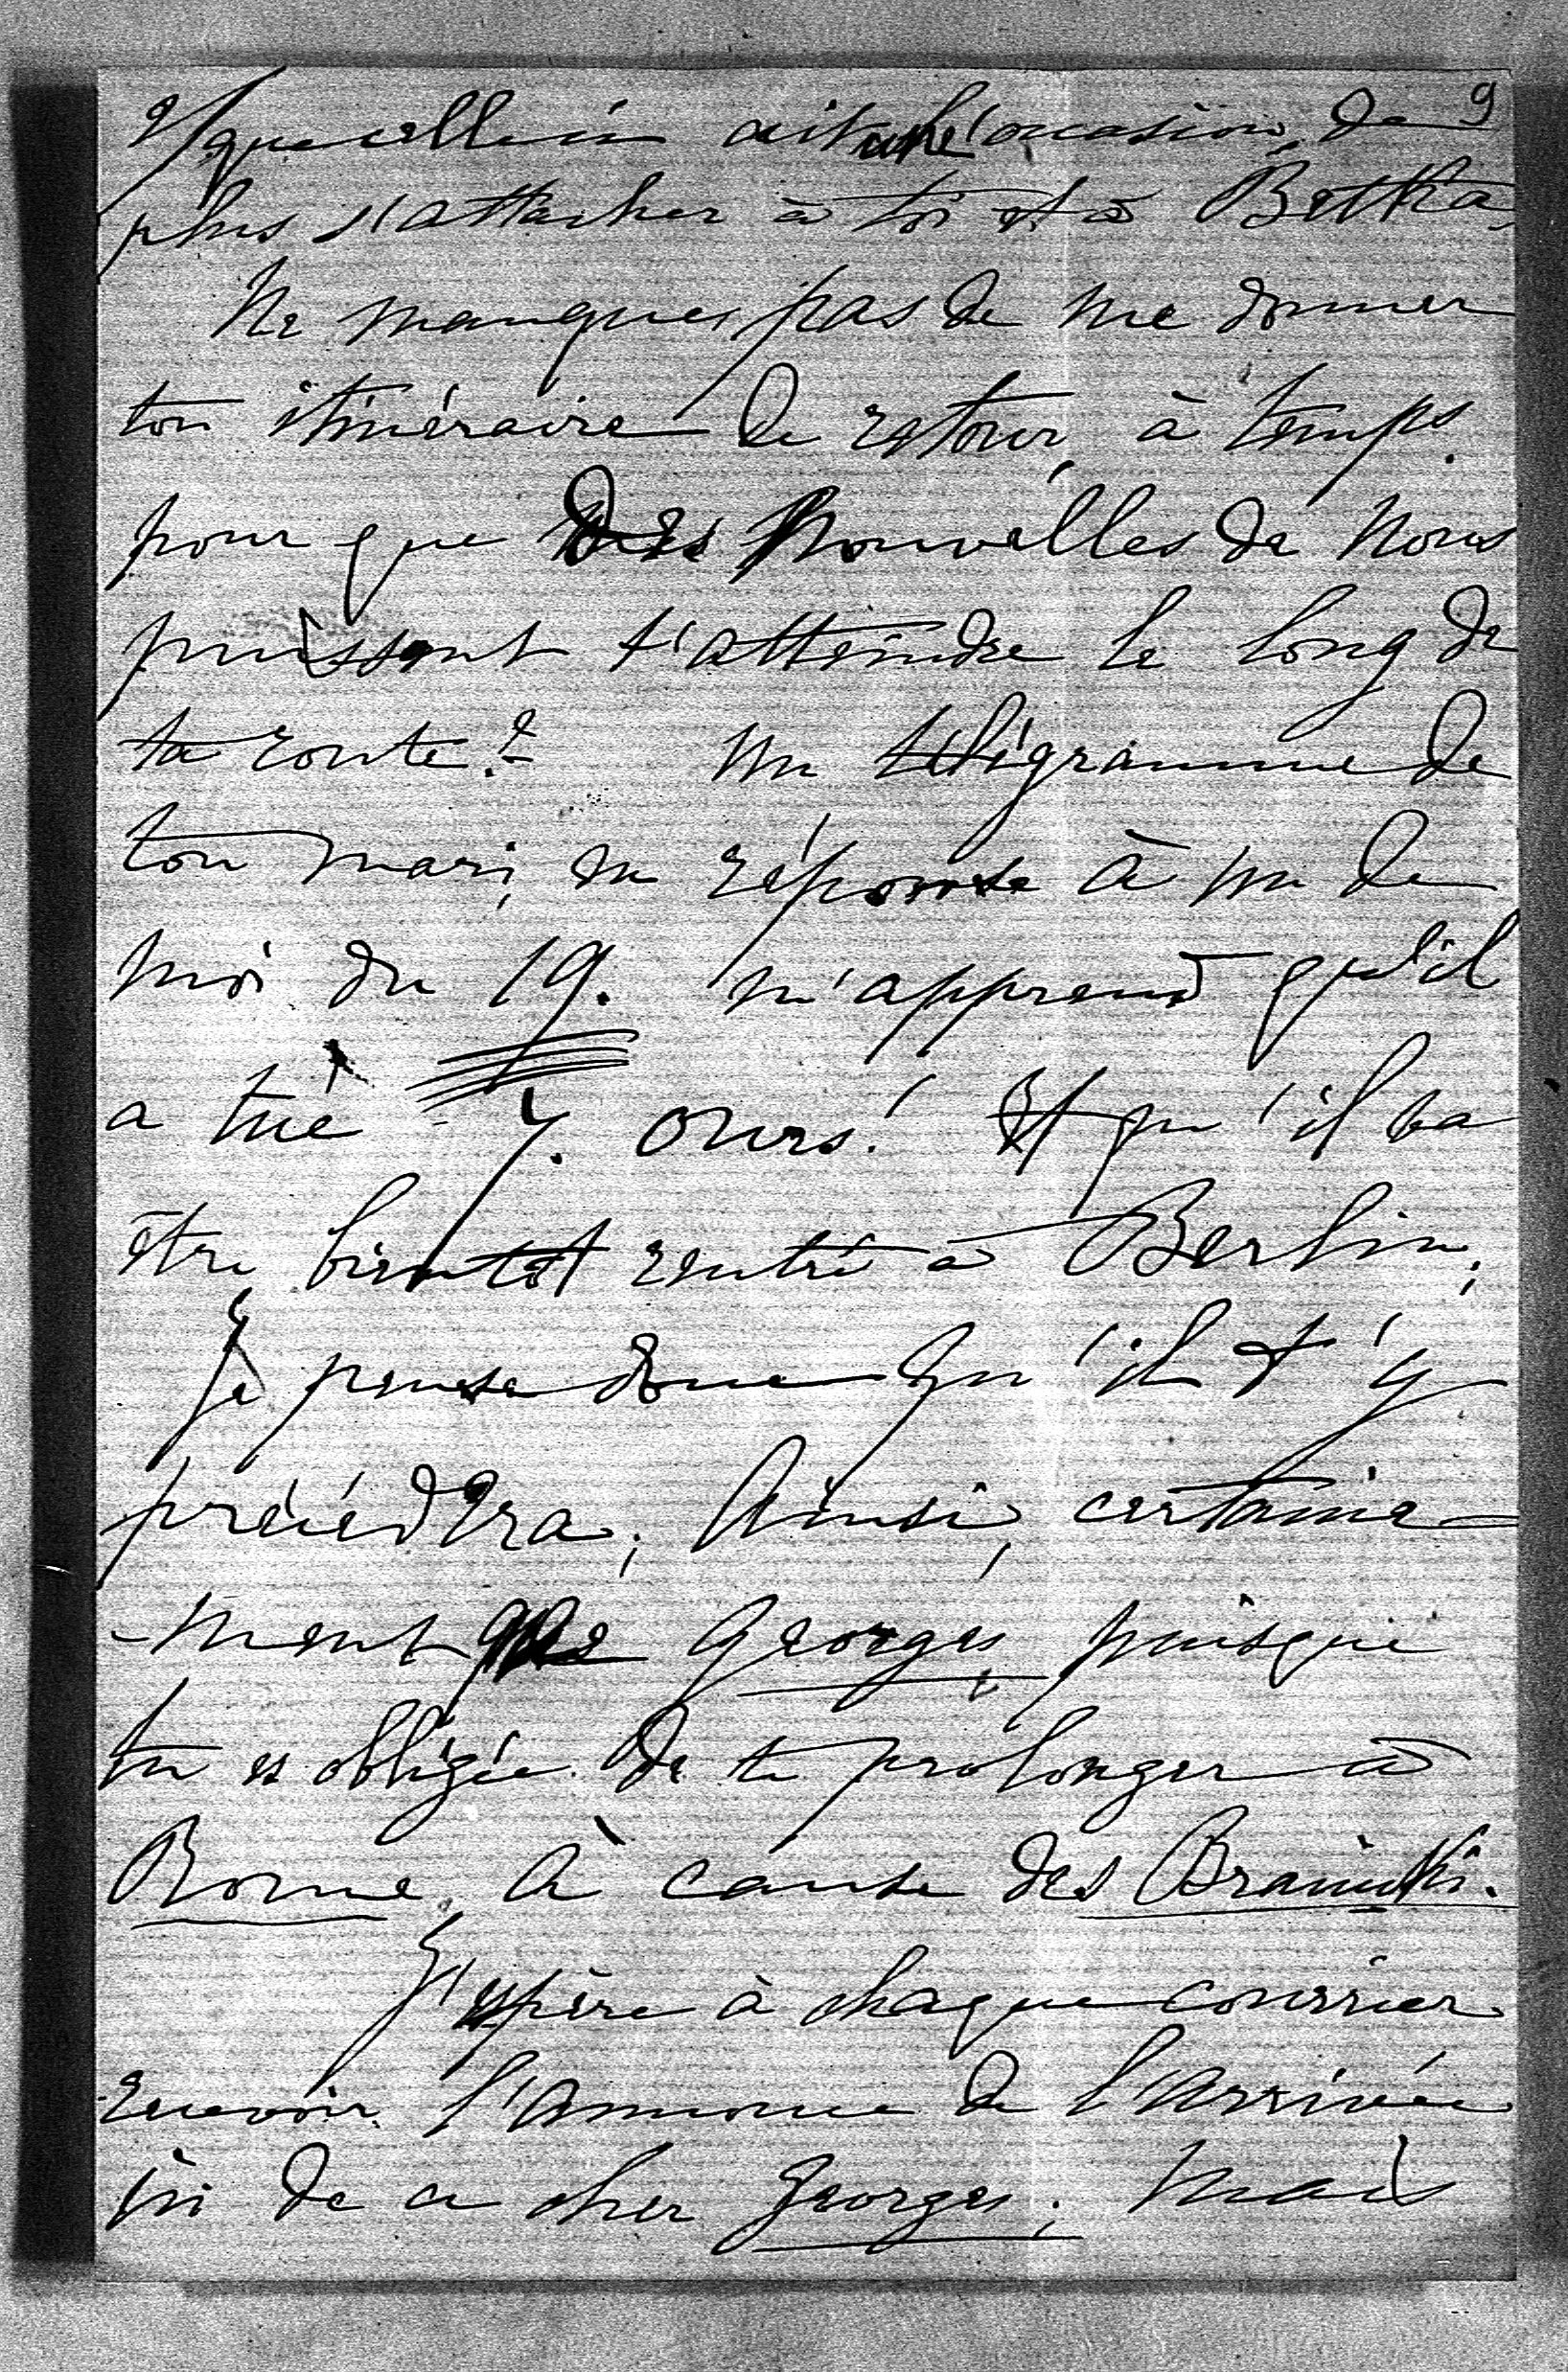 9
2/ que celle-ci ait une occasion de
plus s'attacher à toi et à Bethka.
Ne manques pas de me donner
ton itinéraire de retour, à temps.
pour que des nouvelles de nous
puissent t'atteindre le long de
ta route.? Un télégramme de
ton mari, en réponse à un de
moi du 19. m'apprend qu'il
a tué 7. ours! Et qu'il va
être bientot rentré à Berlin;
Je pense donc qu'il t'y
précédera; Ainsi, certaine-
-ment que Georges, puisque
tu es obligée de te prolonger à
Rome, à cause des Braniçki.
J'espère à chaque courrier
recevoir l'annonce de l'arrivée
ici de ce cher Georges; Mais